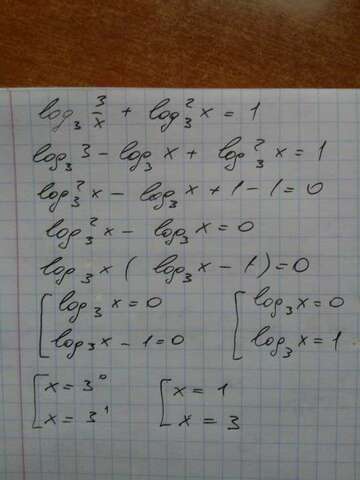 log₃ 3/x + log₃² x = 1
log₃ 3 - log₃ x + log₃² x = 1
log₃² x - log₃ x + 1 - 1 = 0
log₃² x - log₃ x = 0
log₃ x ( log₃ x - 1 ) = 0
[ log₃ x = 0 [ log₃ x = 0
log₃ x - 1 = 0 log₃ x = 1
[ x = 3⁰ [ x = 1
x = 3¹ x = 3